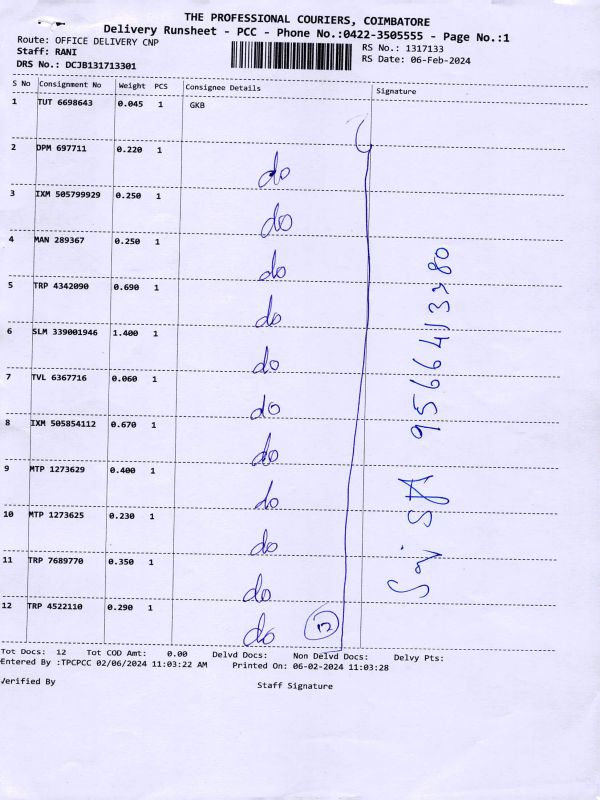 THE PROFESSIONAL COURIERS, COIMBATORE
Delivery Runsheet - PCC - Phone No.:0422-3505555 - Page No.:1
Route: OFFICE DELIVERY CNP
RS No.: 1317133
Staff: RANI
RS Date: 06-Feb-2024
DRS No.: DCJB131713301
S No Consignment No Weight PCS Consignee Details Signature
1 TUT 6698643 0.045 1 GKB
2 DPM 697711 0.220 1 do
3 IXM 505799929 0.250 1 do
4 MAN 289367 0.250 1 do
5 TRP 4342090 0.690 1 do
6 SLM 339001946 1.400 1 do
7 TVL 6367716 0.060 1 do
8 IXM 505854112 0.670 1 do
9 MTP 1273629 0.400 1 do
10 MTP 1273625 0.230 1 do
11 TRP 7689770 0.350 1 do
12 TRP 4522110 0.290 1 do
12
Tot Docs: 12 Tot COD Amt: 0.00 Delvd Docs: Non Delvd Docs: Delvy Pts:
Entered By :TPCPCC 02/06/2024 11:03:22 AM Printed On: 06-02-2024 11:03:28
Verified By Staff Signature